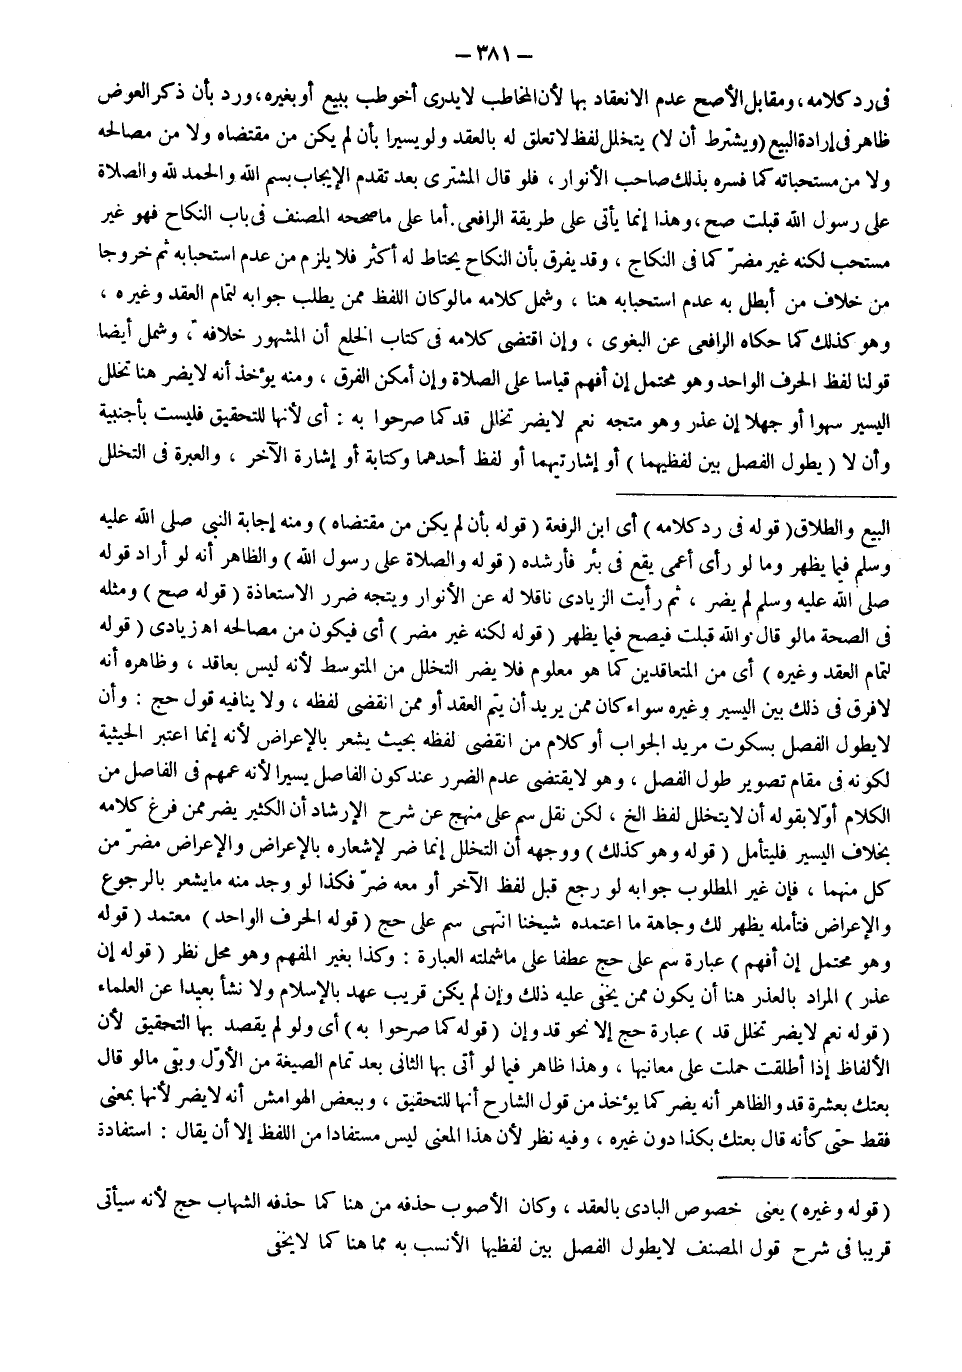 – ٣٨١ –
فى رد كلامه ، ومقابل الأصح عدم الانعقاد بها لأن المخاطب لايدرى أخوطب ببيع أو بغيره ، ورد بأن ذكر العوض
ظاهر فى إرادة البيع (ويشترط أن لا) يتخلل لفظ لاتعلق له بالعقد ولو يسيرا بأن لم يكن من مقتضاه ولا من مصالحه
ولا من مستحباته كما فسره بذلك صاحب الأنوار ، فلو قال المشترى بعد تقدم الإيجاب بسم الله والحمد لله والصلاة
على رسول الله قبلت صح ، وهذا إنما يأتى على طريقة الرافعى . أما على ماصححه المصنف فى باب النكاح فهو غير
مستحب لكنه غير مضرّ كما فى النكاح ، وقد يفرق بأن النكاح يحتاط له أكثر فلا يلزم من عدم استحبابه ثم خروجا
من خلاف من أبطل به عدم استحبابه هنا ، وشمل كلامه مالو كان اللفظ ممن يطلب جوابه لتمام العقد وغيره ،
وهو كذلك كما حكاه الرافعى عن البغوى ، وإن اقتضى كلامه فى كتاب الخلع أن المشهور خلافه ، وشمل أيضا
قولنا لفظ الحرف الواحد وهو محتمل إن أفهم قياسا على الصلاة وإن أمكن الفرق ، ومنه يؤخذ أنه لايضر هنا تخلل
اليسير سهوا أو جهلا إن عذر وهو متجه نعم لايضر تخال قد كما صرحوا به : أى لأنها للتحقيق فليست بأجنبية
وأن لا ( يطول الفصل بين لفظيهما ) أو إشارتيهما أو لفظ أحدهما وكتابة أو إشارة الآخر ، والعبرة فى التخلل
البيع والطلاق ( قوله فى رد كلامه ) أى ابن الرفعة ( قوله بأن لم يكن من مقتضاه ) ومنه إجابة النبى صلى الله عليه
وسلم فيما يظهر وما لو رأى أعمى يقع فى بئر فأرشده ( قوله والصلاة على رسول الله ) والظاهر أنه لو أراد قوله
صلى الله عليه وسلم لم يضر ، ثم رأيت الزيادى ناقلا له عن الأنوار ويتجه ضرر الاستعاذة ( قوله صح ) ومثله
فى الصحة مالو قال والله قبلت فيصح فيما يظهر ( قوله لكنه غير مضر ) أى فيكون من مصالحه اه زيادى ( قوله
لتمام العقد وغيره ) أى من المتعاقدين كما هو معلوم فلا يضر التخلل من المتوسط لأنه ليس بعاقد ، وظاهره أنه
لافرق فى ذلك بين اليسير وغيره سواء كان ممن يريد أن يتم العقد أو ممن انقضى لفظه ، ولا ينافيه قول حج : وأن
لايطول الفصل بسكوت مريد الجواب أو كلام من انقضى لفظه بحيث يشعر بالإعراض لأنه إنما اعتبر الحيثية
لكونه فى مقام تصوير طول الفصل ، وهو لايقتضى عدم الضرر عند كون الفاصل يسيرا لأنه عمهم فى الفاصل من
الكلام أوّلا بقوله أن لايتخلل لفظ الخ ، لكن نقل سم على منهج عن شرح الإرشاد أن الكثير يضر ممن فرغ كلامه
بخلاف اليسير فليتأمل ( قوله وهو كذلك ) ووجهه أن التخلل إنما ضر لإشعاره بالإعراض والإعراض مضرّ من
كل منهما ، فإن غير المطلوب جوابه لو رجع قبل لفظ الآخر أو معه ضرّ فكذا لو وجد منه مايشعر بالرجوع
والإعراض فتأمله يظهر لك وجاهة ما اعتمده شيخنا انتهى سم على حج ( قوله الحرف الواحد ) معتمد ( قوله
وهو محتمل إن أفهم ) عبارة سم على حج عطفا على ماشملته العبارة : وكذا بغير المفهم وهو محل نظر ( قوله إن
عذر ) المراد بالعذر هنا أن يكون ممن يخفى عليه ذلك وإن لم يكن قريب عهد بالإسلام ولا نشأ بعيدا عن العلماء
( قوله نعم لايضر تخلل قد ) عبارة حج إلا نحو قد وإن ( قوله كما صرحوا به ) أى ولو لم يقصد بها التحقيق لأن
الألفاظ إذا أطلقت حملت على معانيها ، وهذا ظاهر فيما لو أتى بها الثانى بعد تمام الصيغة من الأوّل وبقى مالو قال
بعتك بعشرة قد والظاهر أنه يضر كما يؤخذ من قول الشارح أنها للتحقيق ، وببعض الهوامش أنه لايضر لأنها بمعنى
فقط حتى كأنه قال بعتك بكذا دون غيره ، وفيه نظر لأن هذا المعنى ليس مستفادا من اللفظ إلا أن يقال : استفادة
( قوله وغيره ) يعنى خصوص البادى بالعقد ، وكان الأصوب حذفه من هنا كما حذفه الشهاب حج لأنه سيأتى
قريبا فى شرح قول المصنف لايطول الفصل بين لفظيها الأنسب به مما هنا كما لايخفى